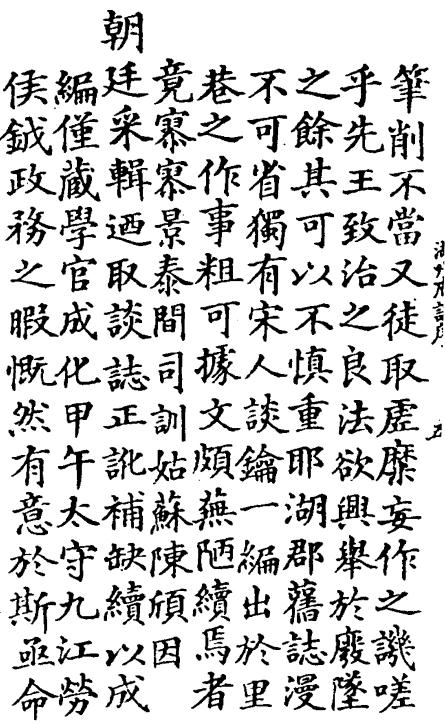 筆削不當又徒取虛糜妄作之譏嗟
乎先王致治之良法欲興舉於廢墜
之餘其可以不慎重耶湖郡舊誌漫
不可省獨有宋人談鑰一編出於里
巷之作事粗可據文頗蕪陋續焉者
竟寥寥景泰間司訓姑蘇陳頎因
朝廷采輯迺取談誌正訛補缺續以成
編僅蔵學官成化甲午太守九江勞
侯鉞政務之暇慨然有意於斯亟命
五